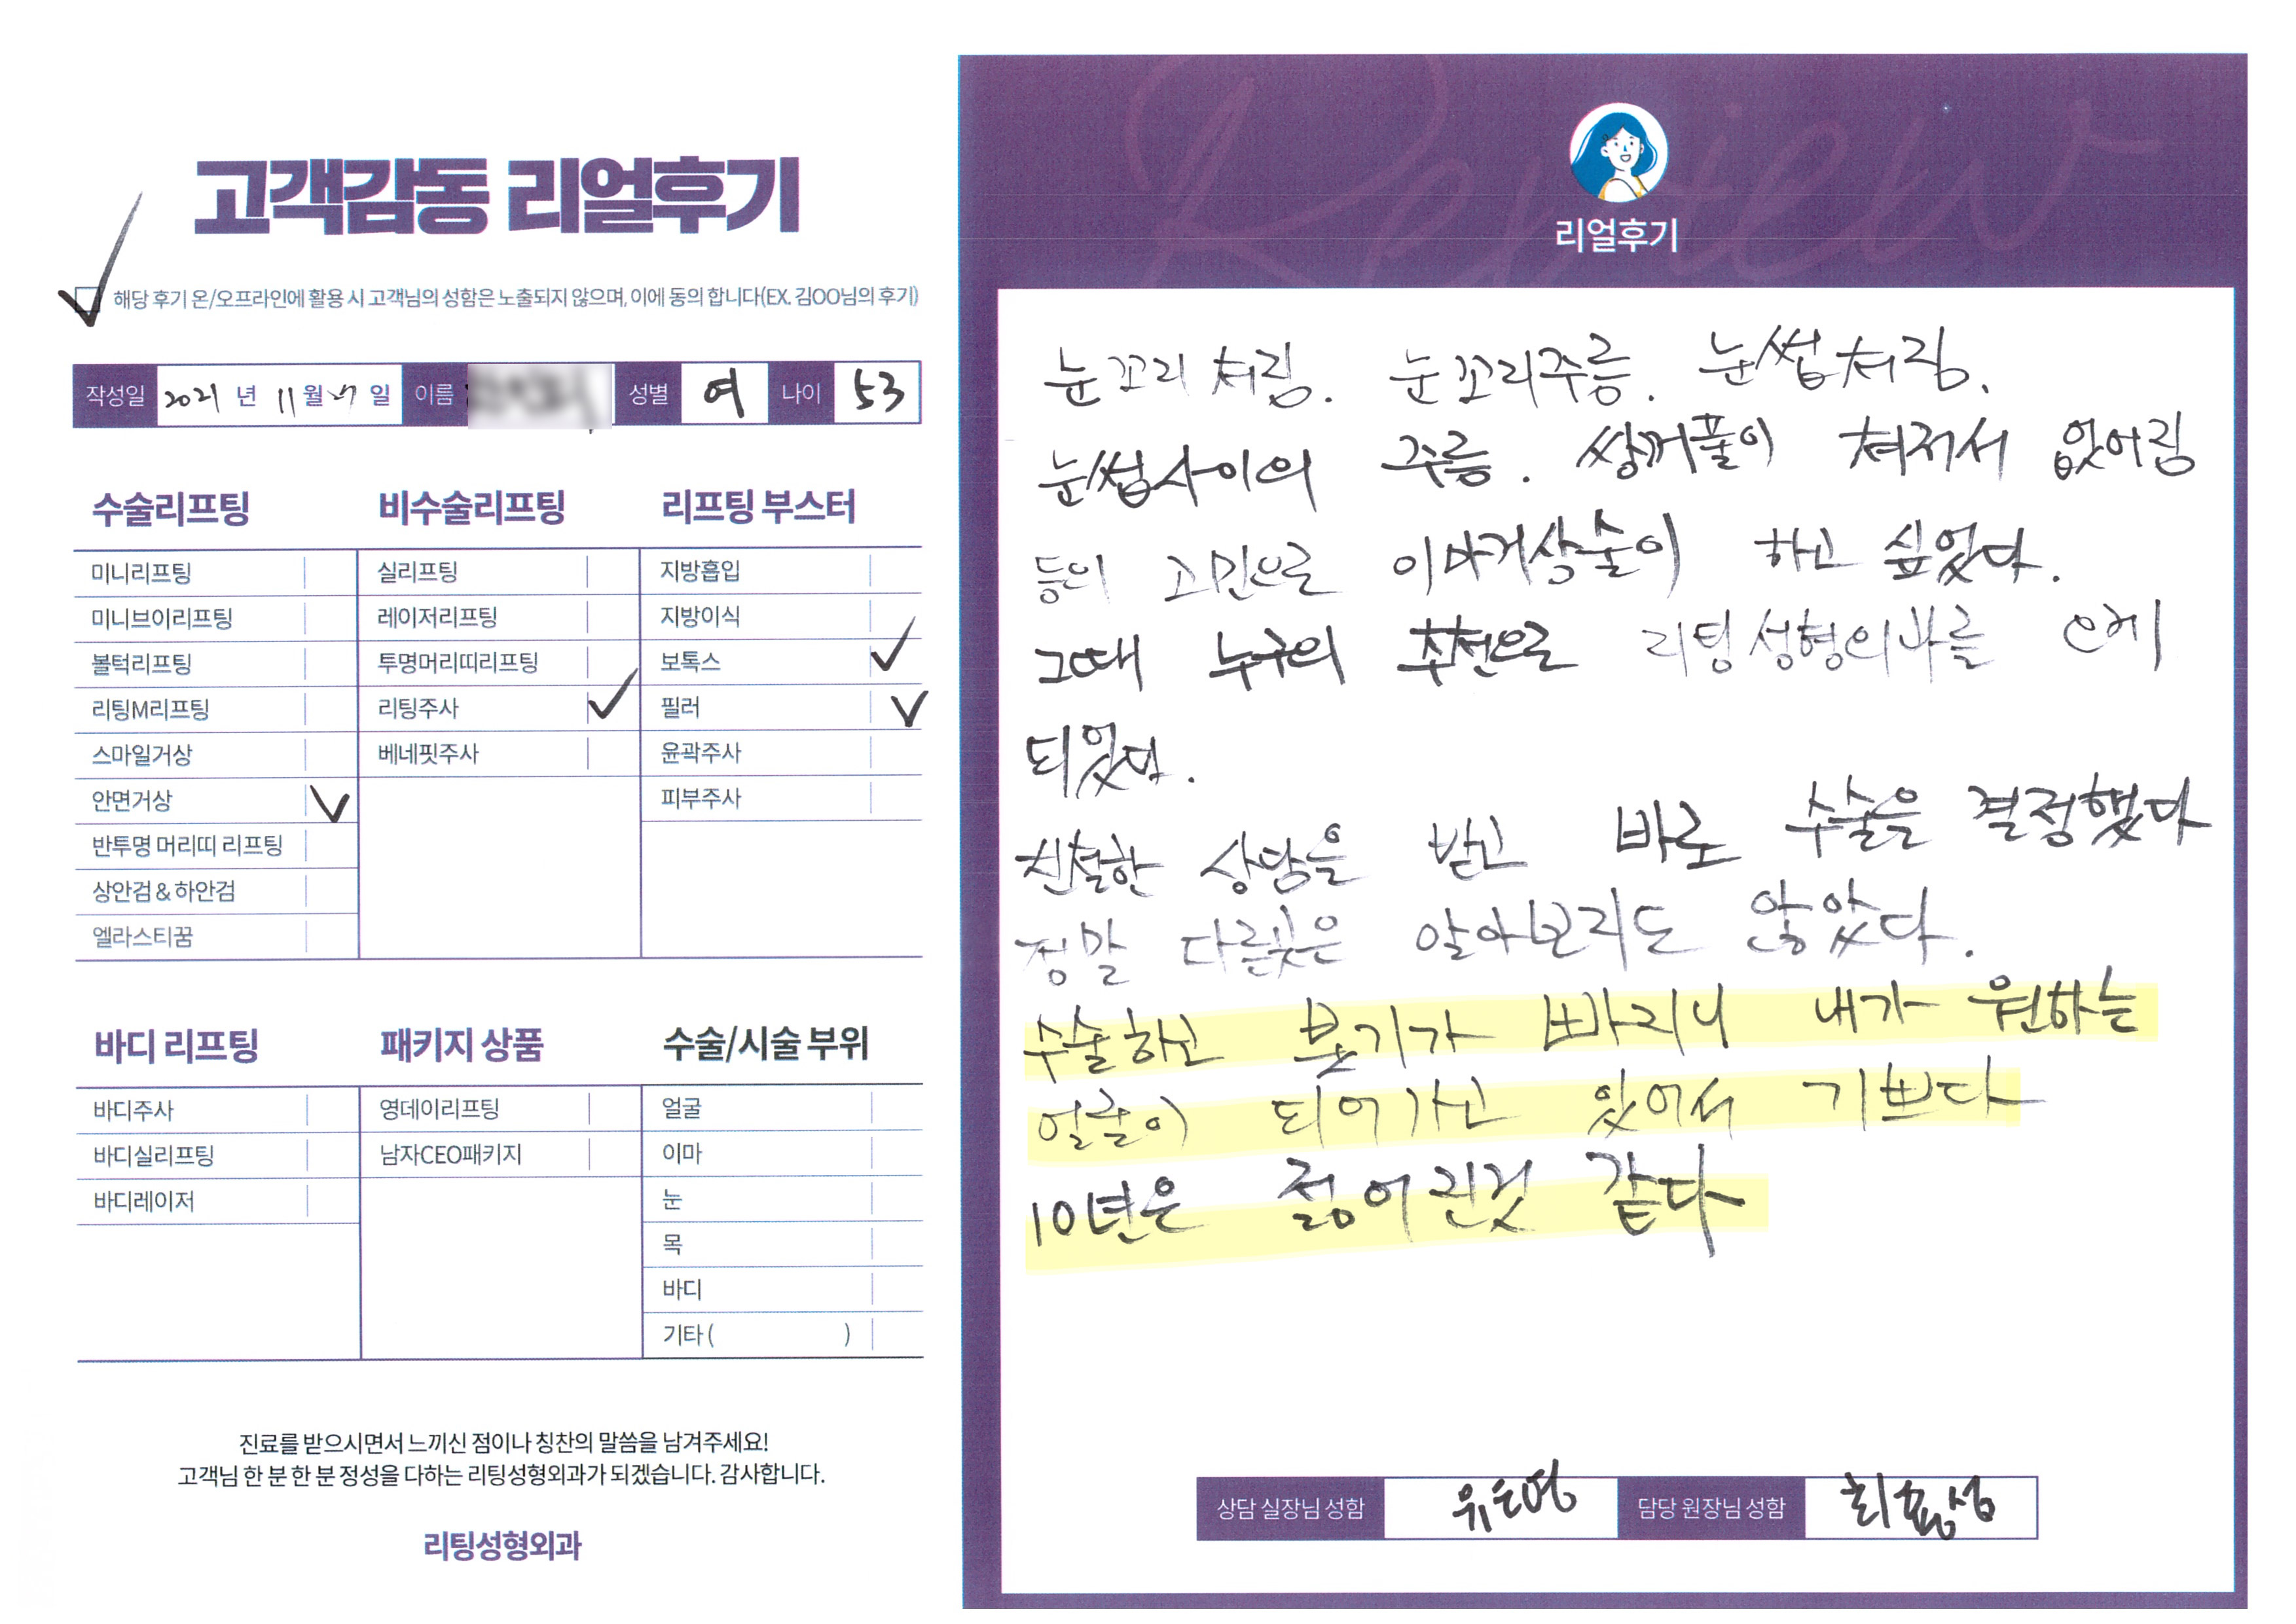 고객감동 리얼후기
해당 후기 온/오프라인에 활용 시 고객님의 성함은 노출되지 않으며, 이에 동의 합니다(EX. 김OO님의 후기)
작성일 2021 년 11월 일 이름 성별 여 나이 53
수술리프팅
미니리프팅
미니브이리프팅
볼턱리프팅
리팅M리프팅
스마일거상
안면거상
반투명 머리띠 리프팅
상안검 & 하안검
엘라스티꿈
비수술리프팅
실리프팅
레이저리프팅
투명머리띠리프팅
리팅주사
베네핏주사
리프팅 부스터
지방흡입
지방이식
보톡스
필러
윤곽주사
피부주사
바디 리프팅
바디주사
바디실리프팅
바디레이저
패키지 상품
영데이리프팅
남자CEO패키지
수술/시술 부위
얼굴
이마
눈
목
바디
기타 ( )
진료를 받으시면서 느끼신 점이나 칭찬의 말씀을 남겨주세요!
고객님 한 분 한 분 정성을 다하는 리팅성형외과가 되겠습니다. 감사합니다.
리팅성형외과
Review
리얼후기
눈꼬리 쳐짐. 눈꼬리주름. 눈썹쳐짐.
눈썹사이의 주름. 쌍꺼풀이 쳐져서 없어짐
등의 고민으로 이마거상술이 하고 싶었다.
그때 누구의 추천으로 리팅성형외과를 오게
되었다.
친절한 상담을 받고 바로 수술을 결정했다
정말 다른곳은 알아보지도 않았다.
수술하고 붓기가 빠지니 내가 원하는
얼굴이 되어가고 있어서 기쁘다
10년은 젊어진것 같다
상담 실장님 성함 담당 원장님 성함